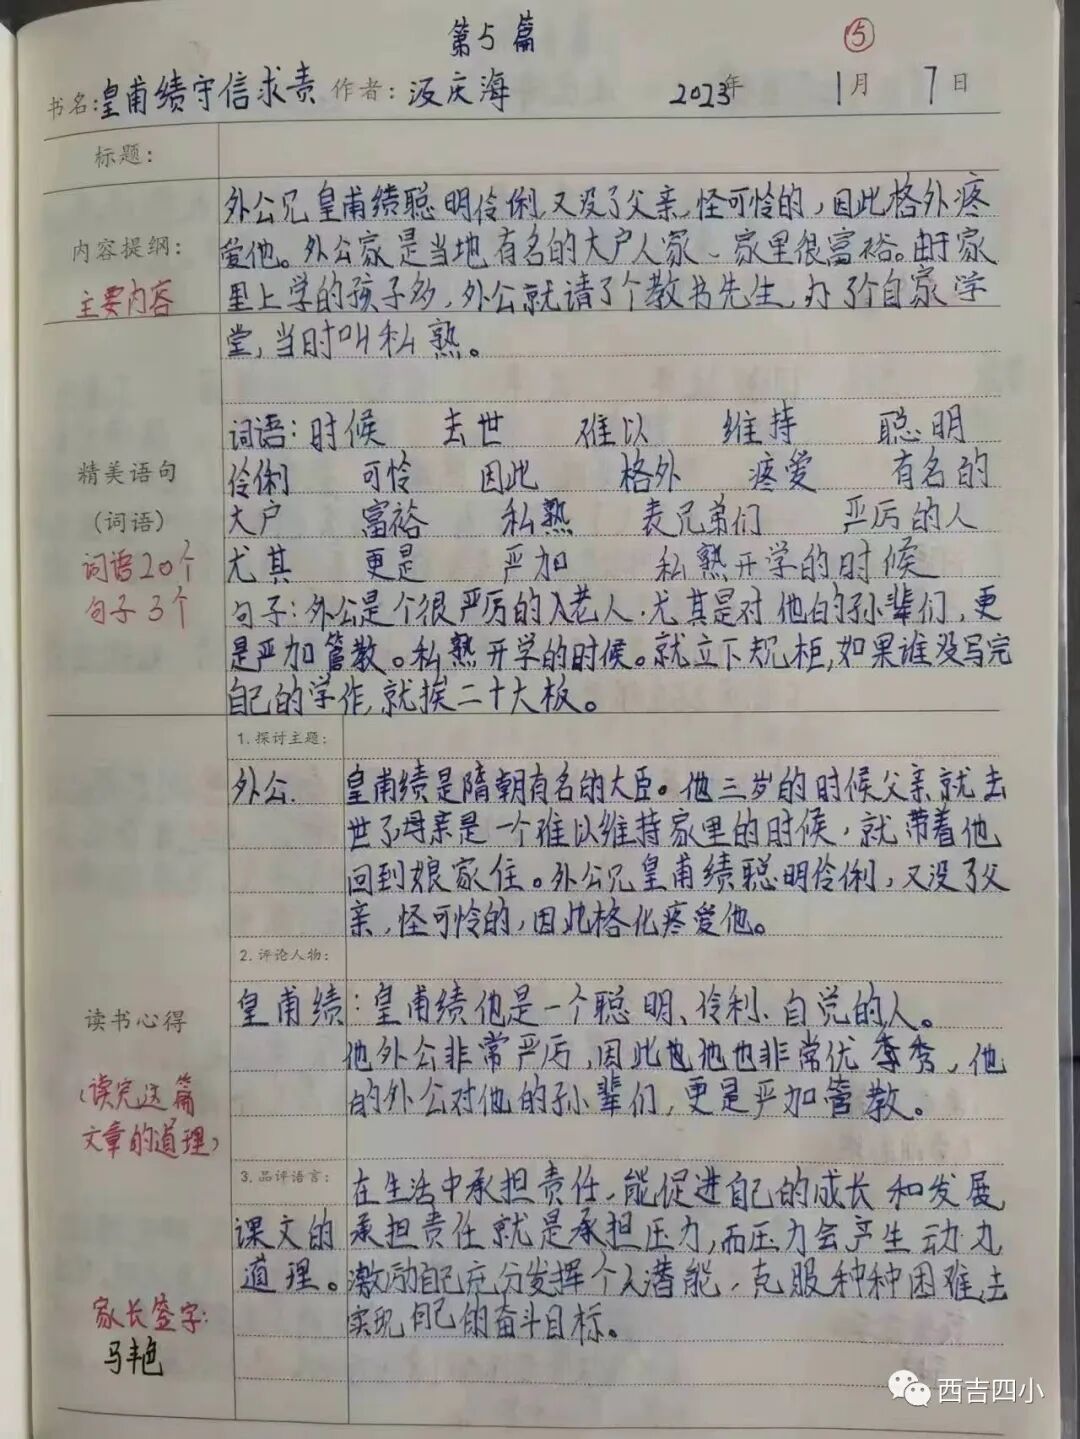 第5篇
⑤
书名:皇甫绩守信求责 作者:汳庆海 2023年 1月 7日
标题:
内容提纲:
主要内容
外公兄皇甫绩聪明伶俐,又没了父亲,怪可怜的,因此格外疼
爱他。外公家是当地有名的大户人家、家里很富裕。由于家
里上学的孩子多,外公就请了个教书先生,办了个自家学
堂,当时叫私熟。
精美语句
(词语)
词语20个
句子3个
词语:时候 去世 难以 维持 聪明
伶俐 可怜 因此 格外 疼爱 有名的
大户 富裕 私熟 表兄弟们 严厉的人
尤其 更是 严加 私熟开学的时候
句子:外公是个很严厉的入老人.尤其是对他的孙辈们,更
是严加管教。私熟开学的时候。就立下规柜,如果谁没写完
自己的学作,就挨二十大板。
读书心得
(读完这篇
文章的道理)
1.探讨主题:
外公.
皇甫绩是隋朝有名的大臣。他三岁的时候父亲就去
世了母亲是一个难以维持家里的时候,就带着他
回到娘家住。外公兄皇甫绩聪明伶俐,又没了父
亲,怪可怜的,因此格化疼爱他。
2.评论人物:
皇甫绩:皇甫绩他是一个聪明、伶利、自觉的人。
他外公非常严厉,因此也他也非常优季秀,他
的外公对他的孙辈们,更是严加管教。
3.品评语言:
课文的
道理。
在生活中承担责任,能促进自己的成长和发展
承担责任就是承担压力,而压力会产生动力
激励自己充分发挥个人潜能,克服种种困难,去
实现自己的奋斗目标。
家长签字:
马丰色
西吉四小